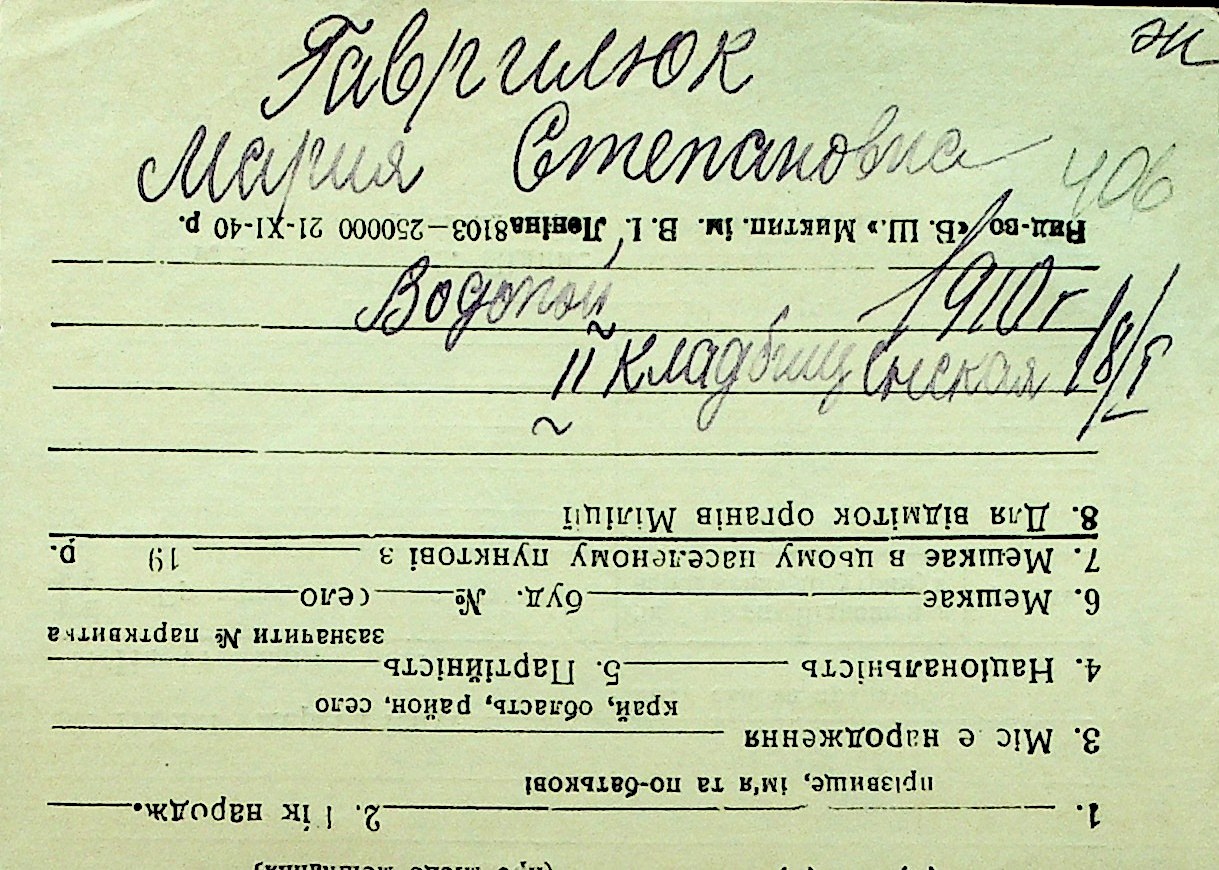 Гаврилюк ж
Мария Степановна 406
Вид-во «Б. Ш.» Миктип. ім. В. І. Леніна 8103—250000 21-XI-40 р.
Водопой 1910 г
II Кладбищенская 18/
8. Для відміток органів Міліції
7. Мешкає в цьому населеному пунктові з 19 р.
6. Мешкає буд. № село
зазначити № партквитка
4. Національність 5. Партійність
край, область, район, село
3. Міс е народження
прізвище, ім'я та по-батькові
1. 2. Рік народж.